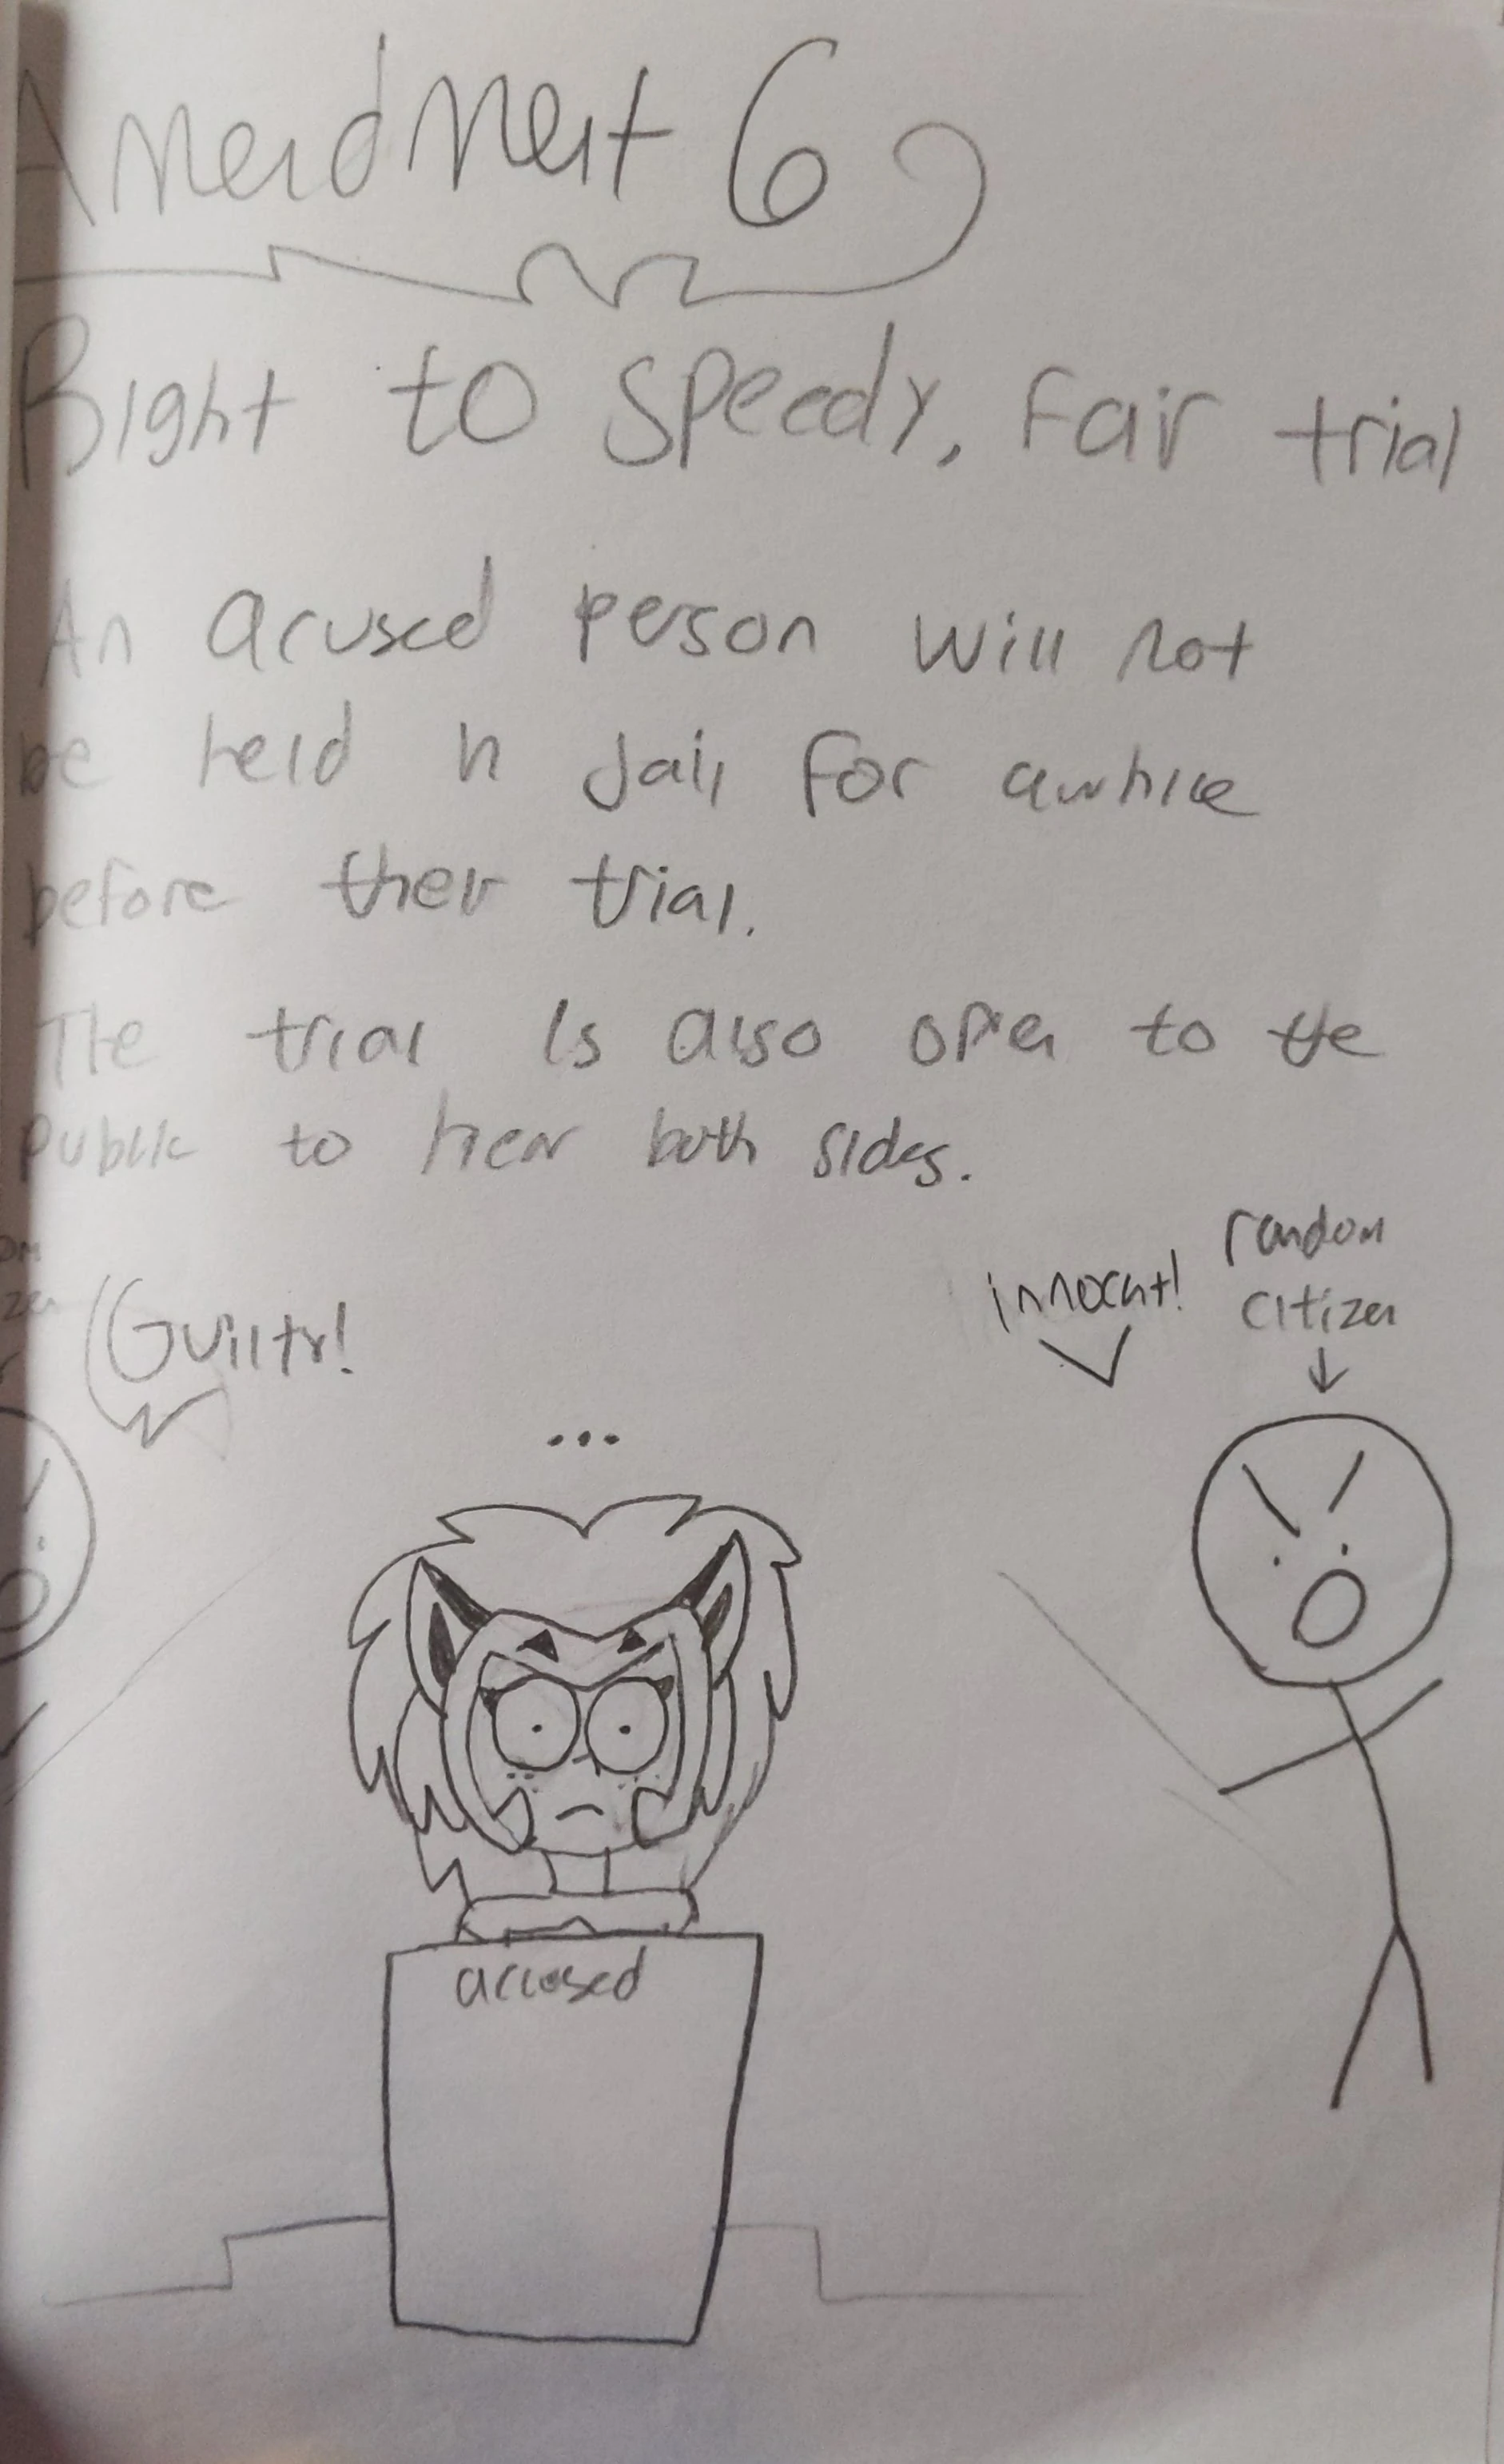 Amendment 6
Right to speedy, fair trial
An acused person will not
be held in jail for awhile
before their trial.
The trial is also open to the
public to hear both sides.
random
citizen
innocent!
Guilty!
...
accused